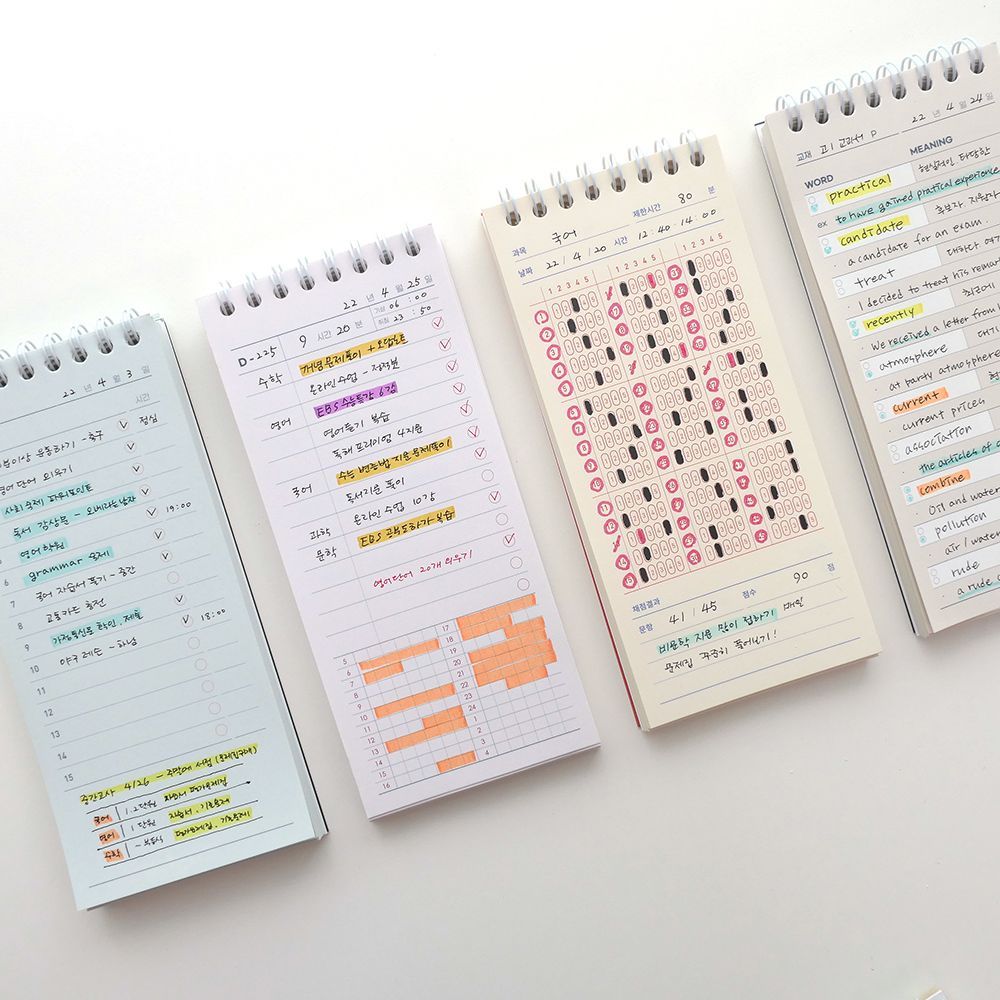 22 년 4 월 3 일
시간
영어단어 외우기 점심
사회 숙제 파워포인트
독서 감상문 - 오베라는 남자
영어학원 19:00
6 grammar 숙제
7 국어 자습서 풀기 - 중간
8 교통카드 충전
9 가정통신문 확인, 제출
10 야구 레슨 - 하남 18:00
11
12
13
14
15
중간고사 4/26 - 주말에 서점
국어 1. 2단원
영어 1 단원 자습서, 기출문제
수학
22 년 4 월 25 일
D-225 9 시간 20 분 기상 06 : 00
취침 23 : 50
수학 개념문제풀이 + 오답노트
온라인 수업 - 적분
영어 EBS 수능특강 6강
영어듣기 복습
독해 프리미엄 4지문
국어 수능 변형법 지문 문제풀이
독서지문 풀이
과학 온라인 수업 10강
문학 EBS 복습
영어단어 20개 외우기
5 17
6 18
7 19
8 20
9 21
10 22
11 23
12 24
13 1
14 2
15 3
16 4
과목 국어 제한시간 80 분
날짜 22 / 4 / 20 시간 12:40 - 14:00
1 2 3 4 5 1 2 3 4 5 1 2 3 4 5
채점결과
문항 41 / 45 점수 90 점
비문학 지문 많이 접하기 매일
문제집 꾸준히 풀어보기!
교재 고1 교과서 P 22 년 4 월 24 일
WORD MEANING
practical 현실적인 타당한
ex to have gained pratical experience
candidate 후보자 지원자
a candidate for an exam.
treat 대하다
I decided to treat his remar
recently 최근에
We received a letter from
atmosphere 대기
at party atmosphere
current
current prices
association
the articles of
combine
Oil and water
pollution
air / water
rude
a rude